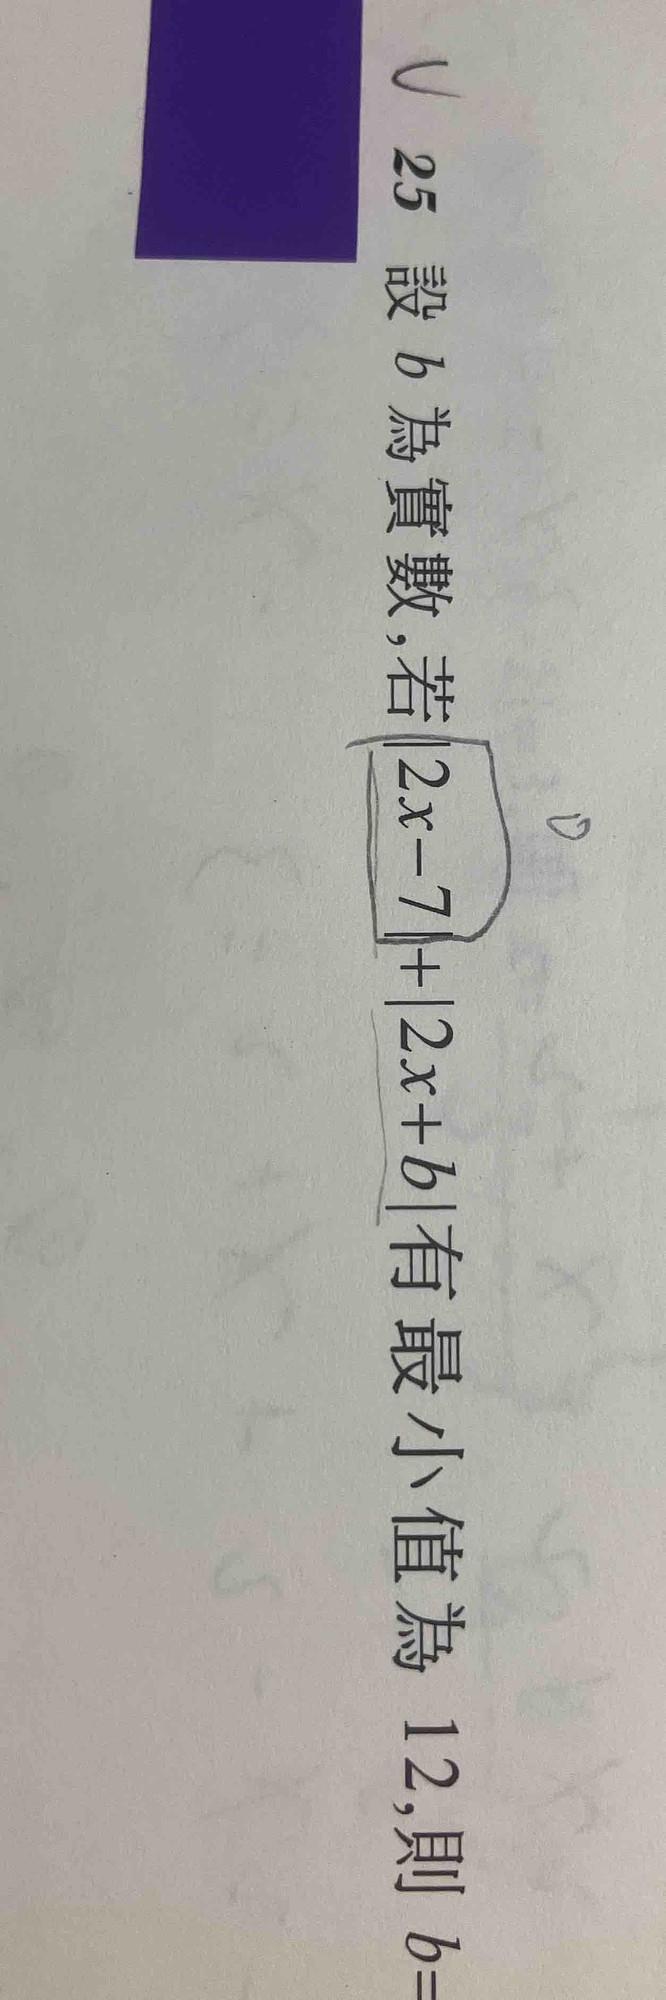 25 設 b 為實數,若|2x−7|+|2x+b|有最小值為 12,則 b=